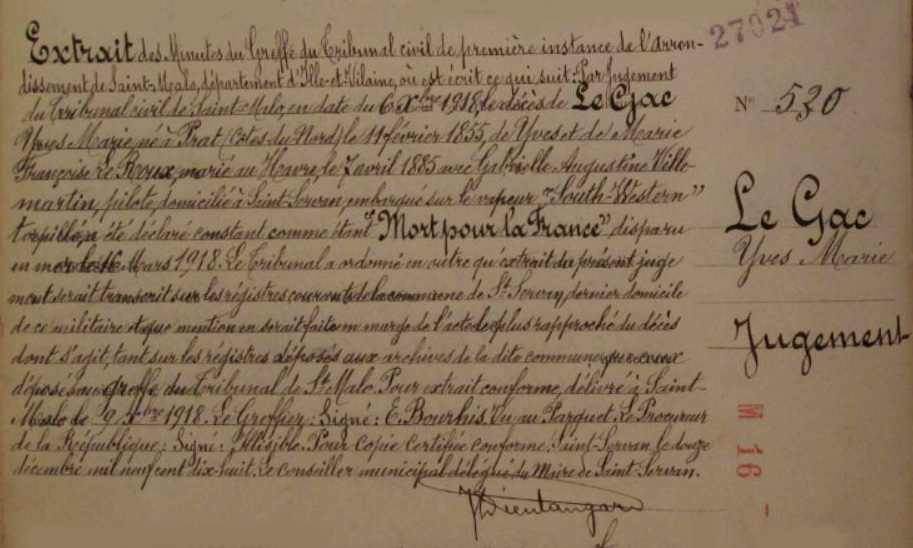 27021
Extrait des Minutes du Greffe du Tribunal civil de première instance de l'Arron-
dissement de Saint-Malo, département d'Ille-et-Vilaine, où est écrit ce qui suit: Par Jugement
du Tribunal civil de Saint-Malo, en date du 6 Xbre 1918, le décès de Le Gac
Yves Marie né à Prat (Côtes du Nord) le 11 février 1855, de Yves et de Marie
Françoise Le Roux, marié au Havre, le 7 avril 1885 avec Gabrielle Augustine Ville-
martin, pilote, domicilié à Saint-Servan, embarqué sur le vapeur "South-Western"
torpillé, a été déclaré constant comme étant "Mort pour la France" disparu
en mer le 16 Mars 1918. Le Tribunal a ordonné en outre qu'extrait du présent juge
ment serait transcrit sur les régistres courants de la commune de St Servan, dernier domicile
de ce militaire et que mention en serait faite en marge de l'acte le plus rapproché du décès
dont s'agit, tant sur les régistres déposés aux archives de la dite commune que ceux
déposés au greffe du Tribunal de St Malo. Pour extrait conforme, délivré à Saint-
Malo le 9 Xbre 1918. Le Greffier: Signé: E. Bourhis. Vu au Parquet: Le Procureur
de la République: Signé: Illisible. Pour Copie Certifiée conforme. Saint-Servan, le douze
décembre mil neuf cent dix-huit. Le Conseiller municipal délégué du Maire de Saint Servan.
N° 530
Le Gac
Yves Marie
Jugement
M 16 -